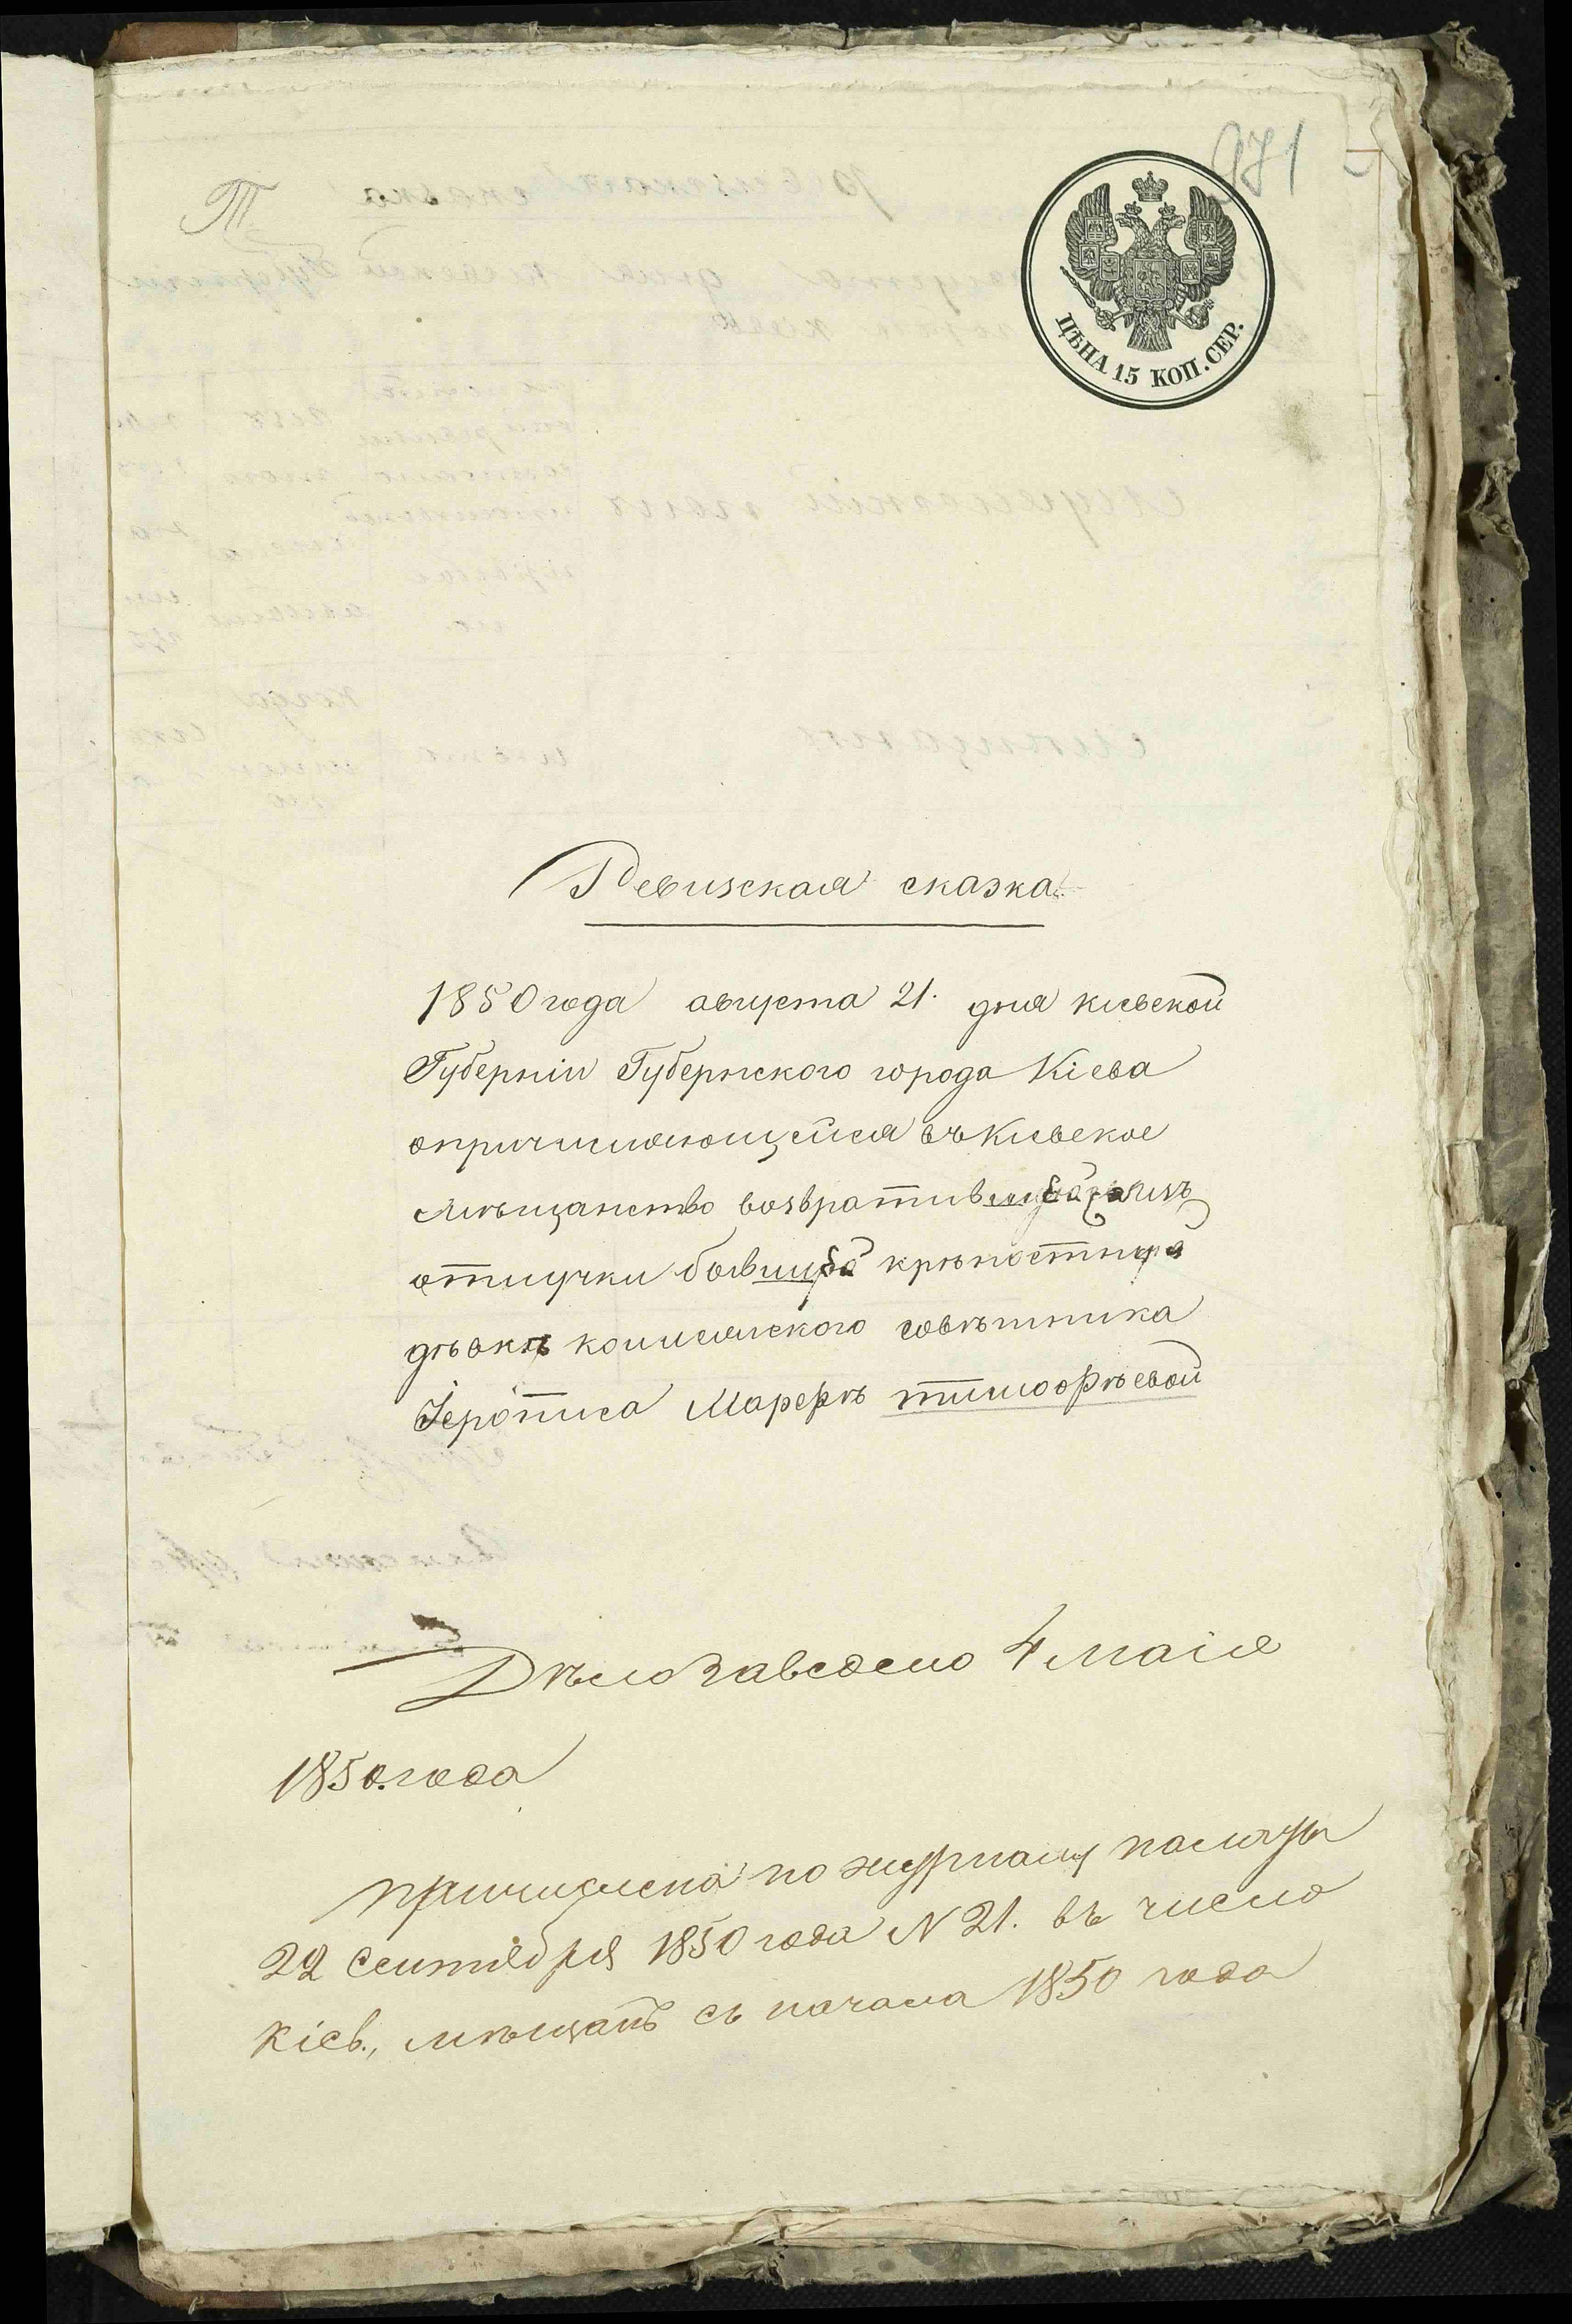 Т
971
ЦѢНА 15 КОП. СЕР.
Ревизская сказка
1850 года августа 21. дня киевской
Губерніи Губернского города Кіева
опричисляющейся въ Киевское
мѣщанство возвратив изъ
отлучки крѣпостн
дѣвкѣ колежского совѣтника
Іерописа Марфѣ тимофѣевой
Дѣло заведено 4 маія
1850. года
причислена по журналу палаты
22 Сентября 1850 года N 21. въ число
Кіев., мѣщанъ съ начала 1850 года